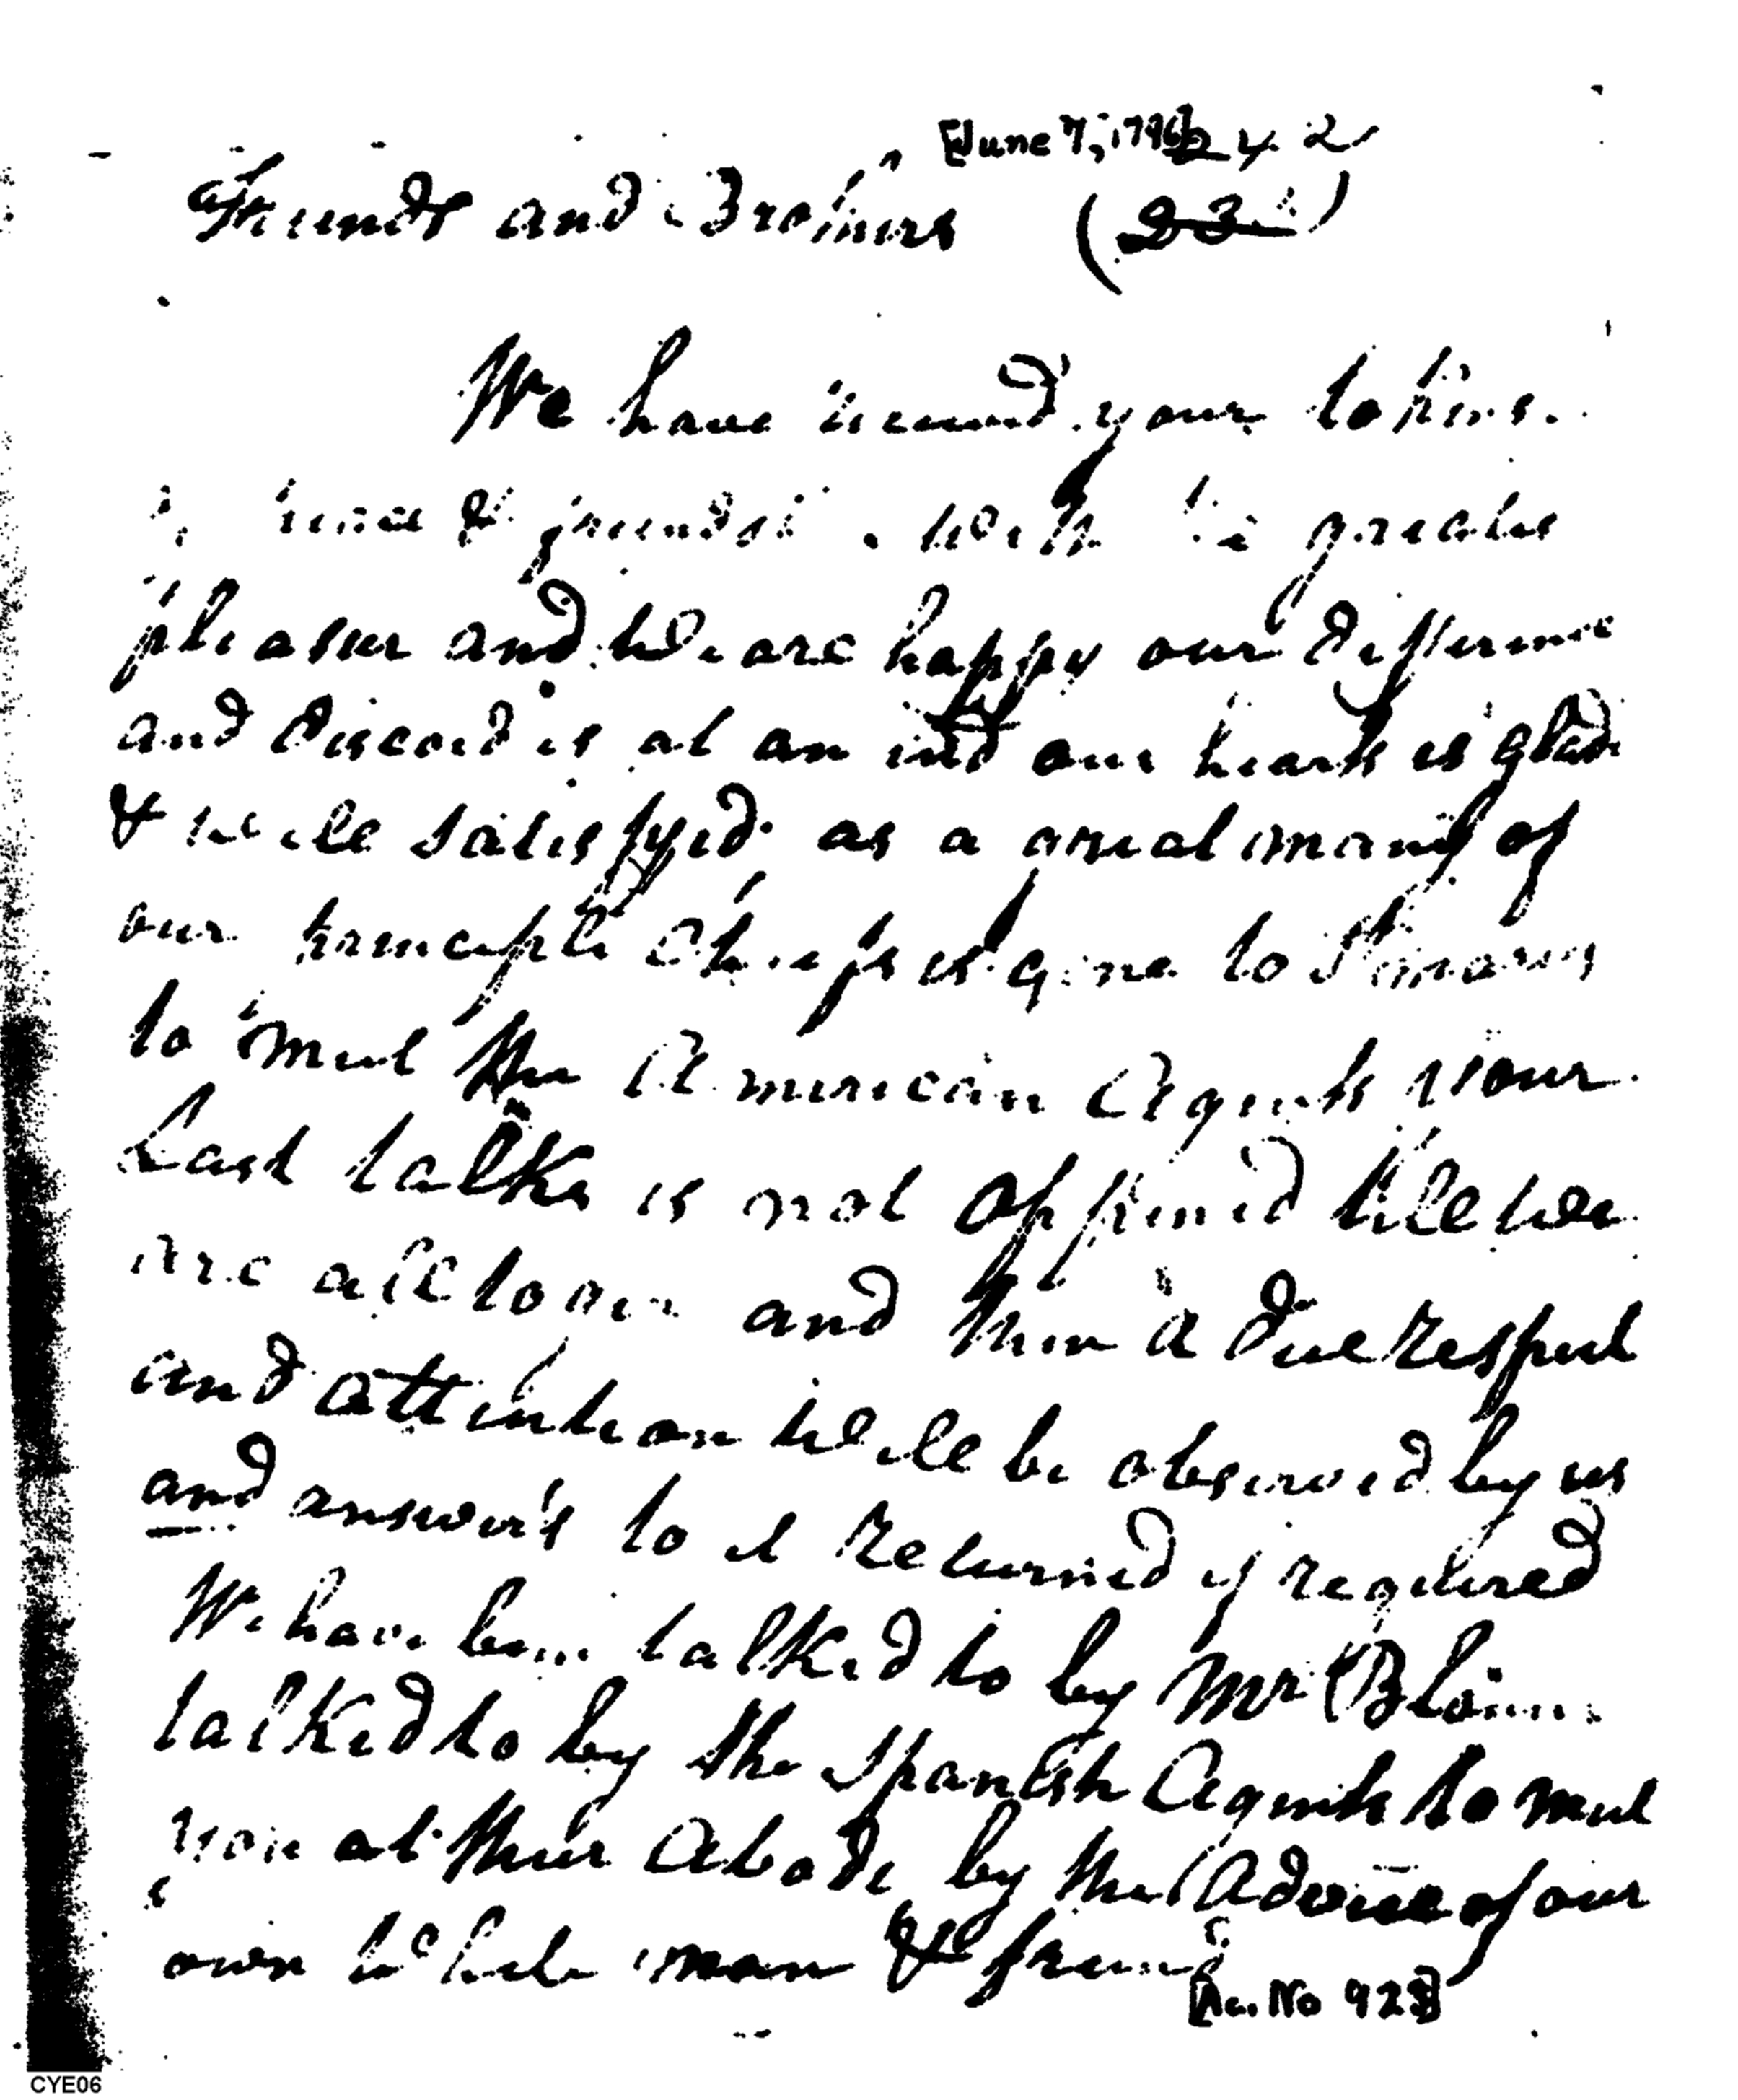 [June 7, 1796] 42
Friends and Brothers (22)
We have receved your tokens
of peace & friendship with the greates
pleasur and We are happy our differince
and discord is at an ind our hearts is glad
& well satisfyed as a great many of
our principle Chiefs is gone to St marys
to meet the American Agents your
Last talks is not oppened till we
are all togeer and then a due respect
and attention will be observed by us
and answer's to it returned if required
We have been talked to by Mr
talked to by the Spanish Agents to meet
you at their Abode by the Advice of our
own White man & friend
[Ac. No 923]
CYE06